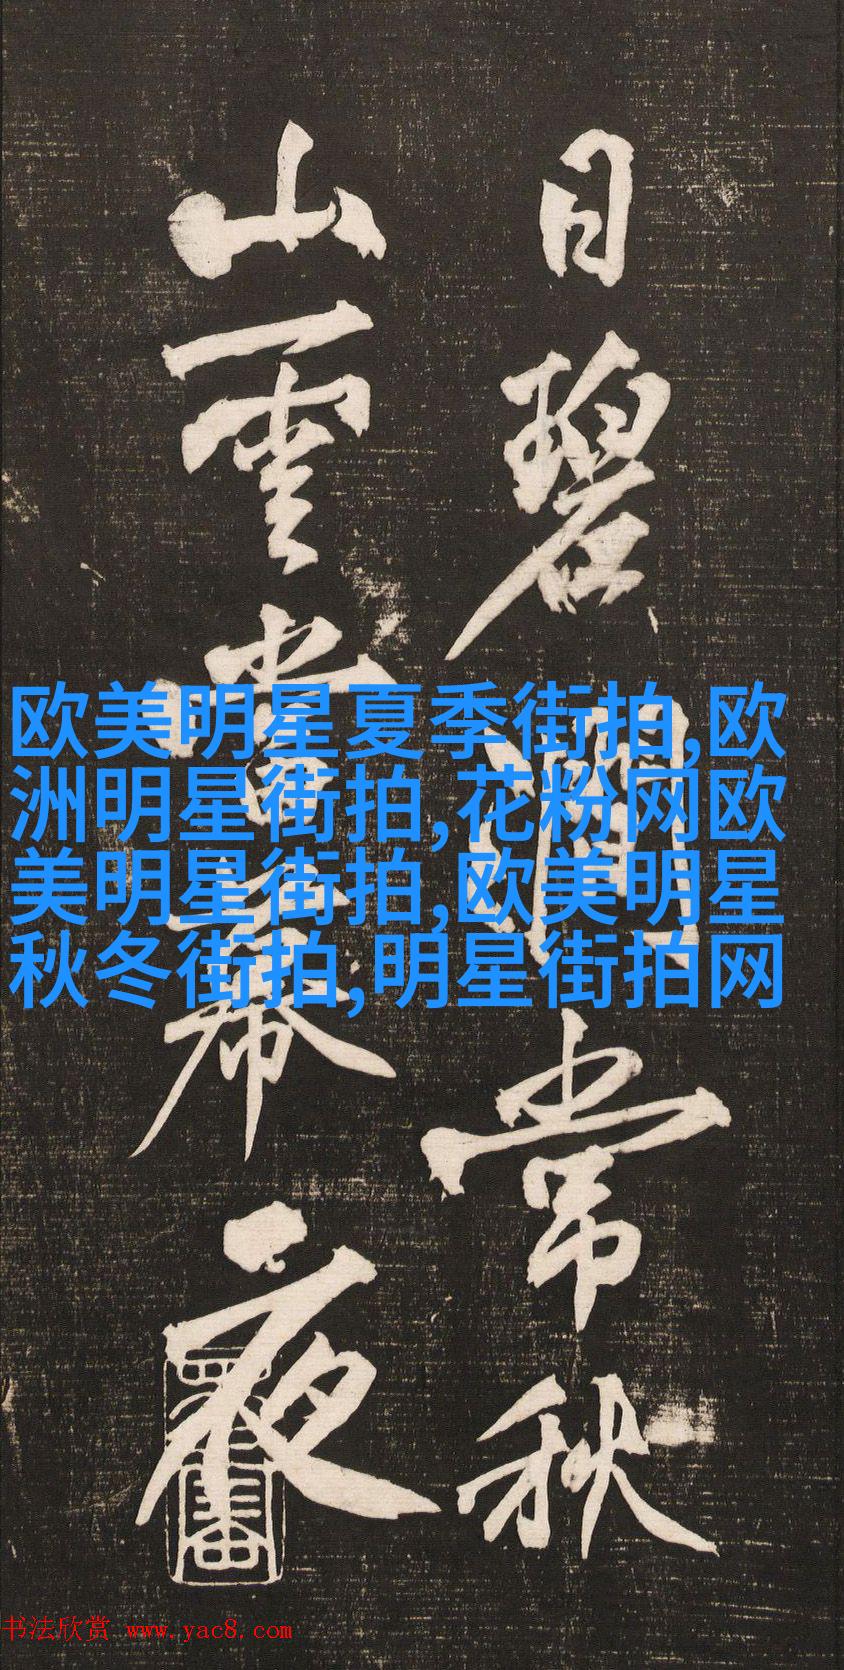 日碧澗常秋
山雲當幕夜
欧美明星夏季街拍,欧
洲明星街拍,花粉网欧
美明星街拍,欧美明星
秋冬街拍,明星街拍网
书法欣赏 www.yac8.com